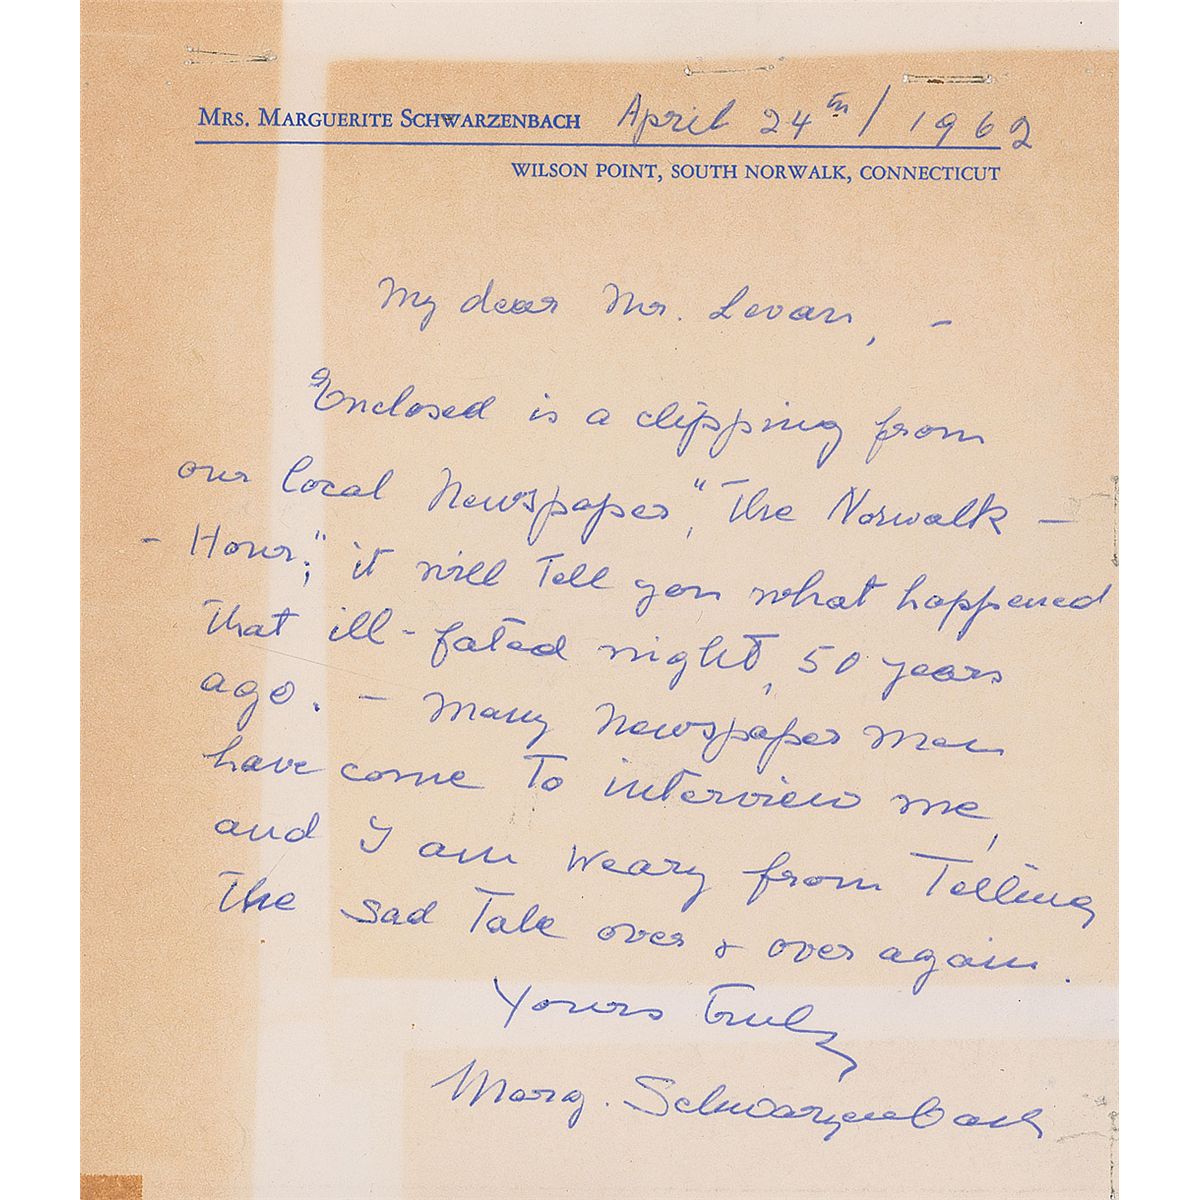 MRS. MARGUERITE SCHWARZENBACH April 24th / 1962
WILSON POINT, SOUTH NORWALK, CONNECTICUT
My dear Mr. Levan, -
Enclosed is a clipping from
our local Newspaper, "The Norwalk -
- Hour"; it will Tell you what happened
That ill-fated night, 50 years
ago. - Many Newspaper men
have come To interview me,
and I am weary from Telling
The sad Tale over & over again.
Yours Truly
Marg. Schwarzenbach